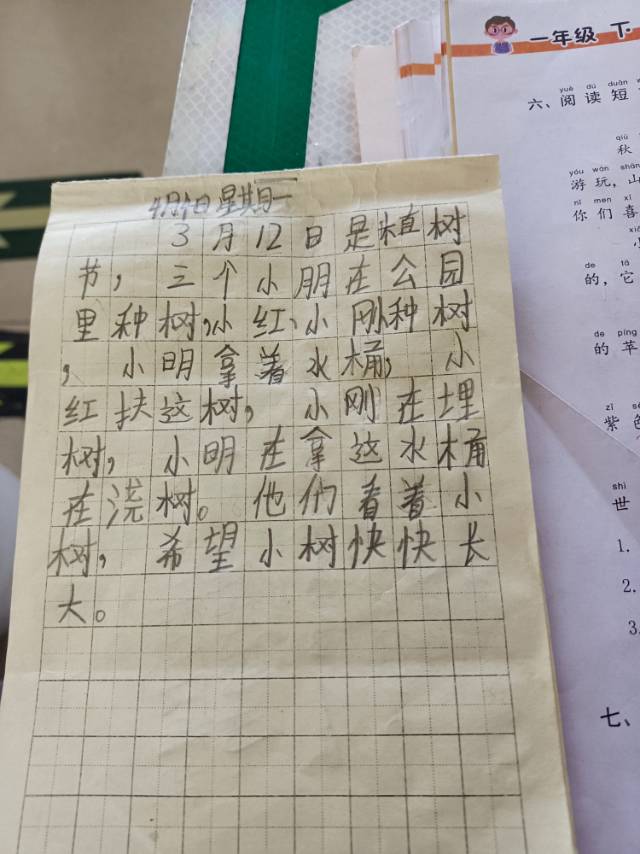 星期一
3月12日是植树
节，三个小朋在公园
里种树，小红、小刚种树
，小明拿着水桶，小
红扶这树，小刚在埋
树，小明在拿这水桶
在浇树。他们看着小
树，希望小树快快长
大。
一年级 下
yuè dú duǎn
六、阅读短
qiū
秋
yóu wán shān
游玩，山
nǐ men xǐ
你们喜
de tā
的，它
de píng
的苹
zǐ sè
紫色
shì
世
1.
2.
3.
七、